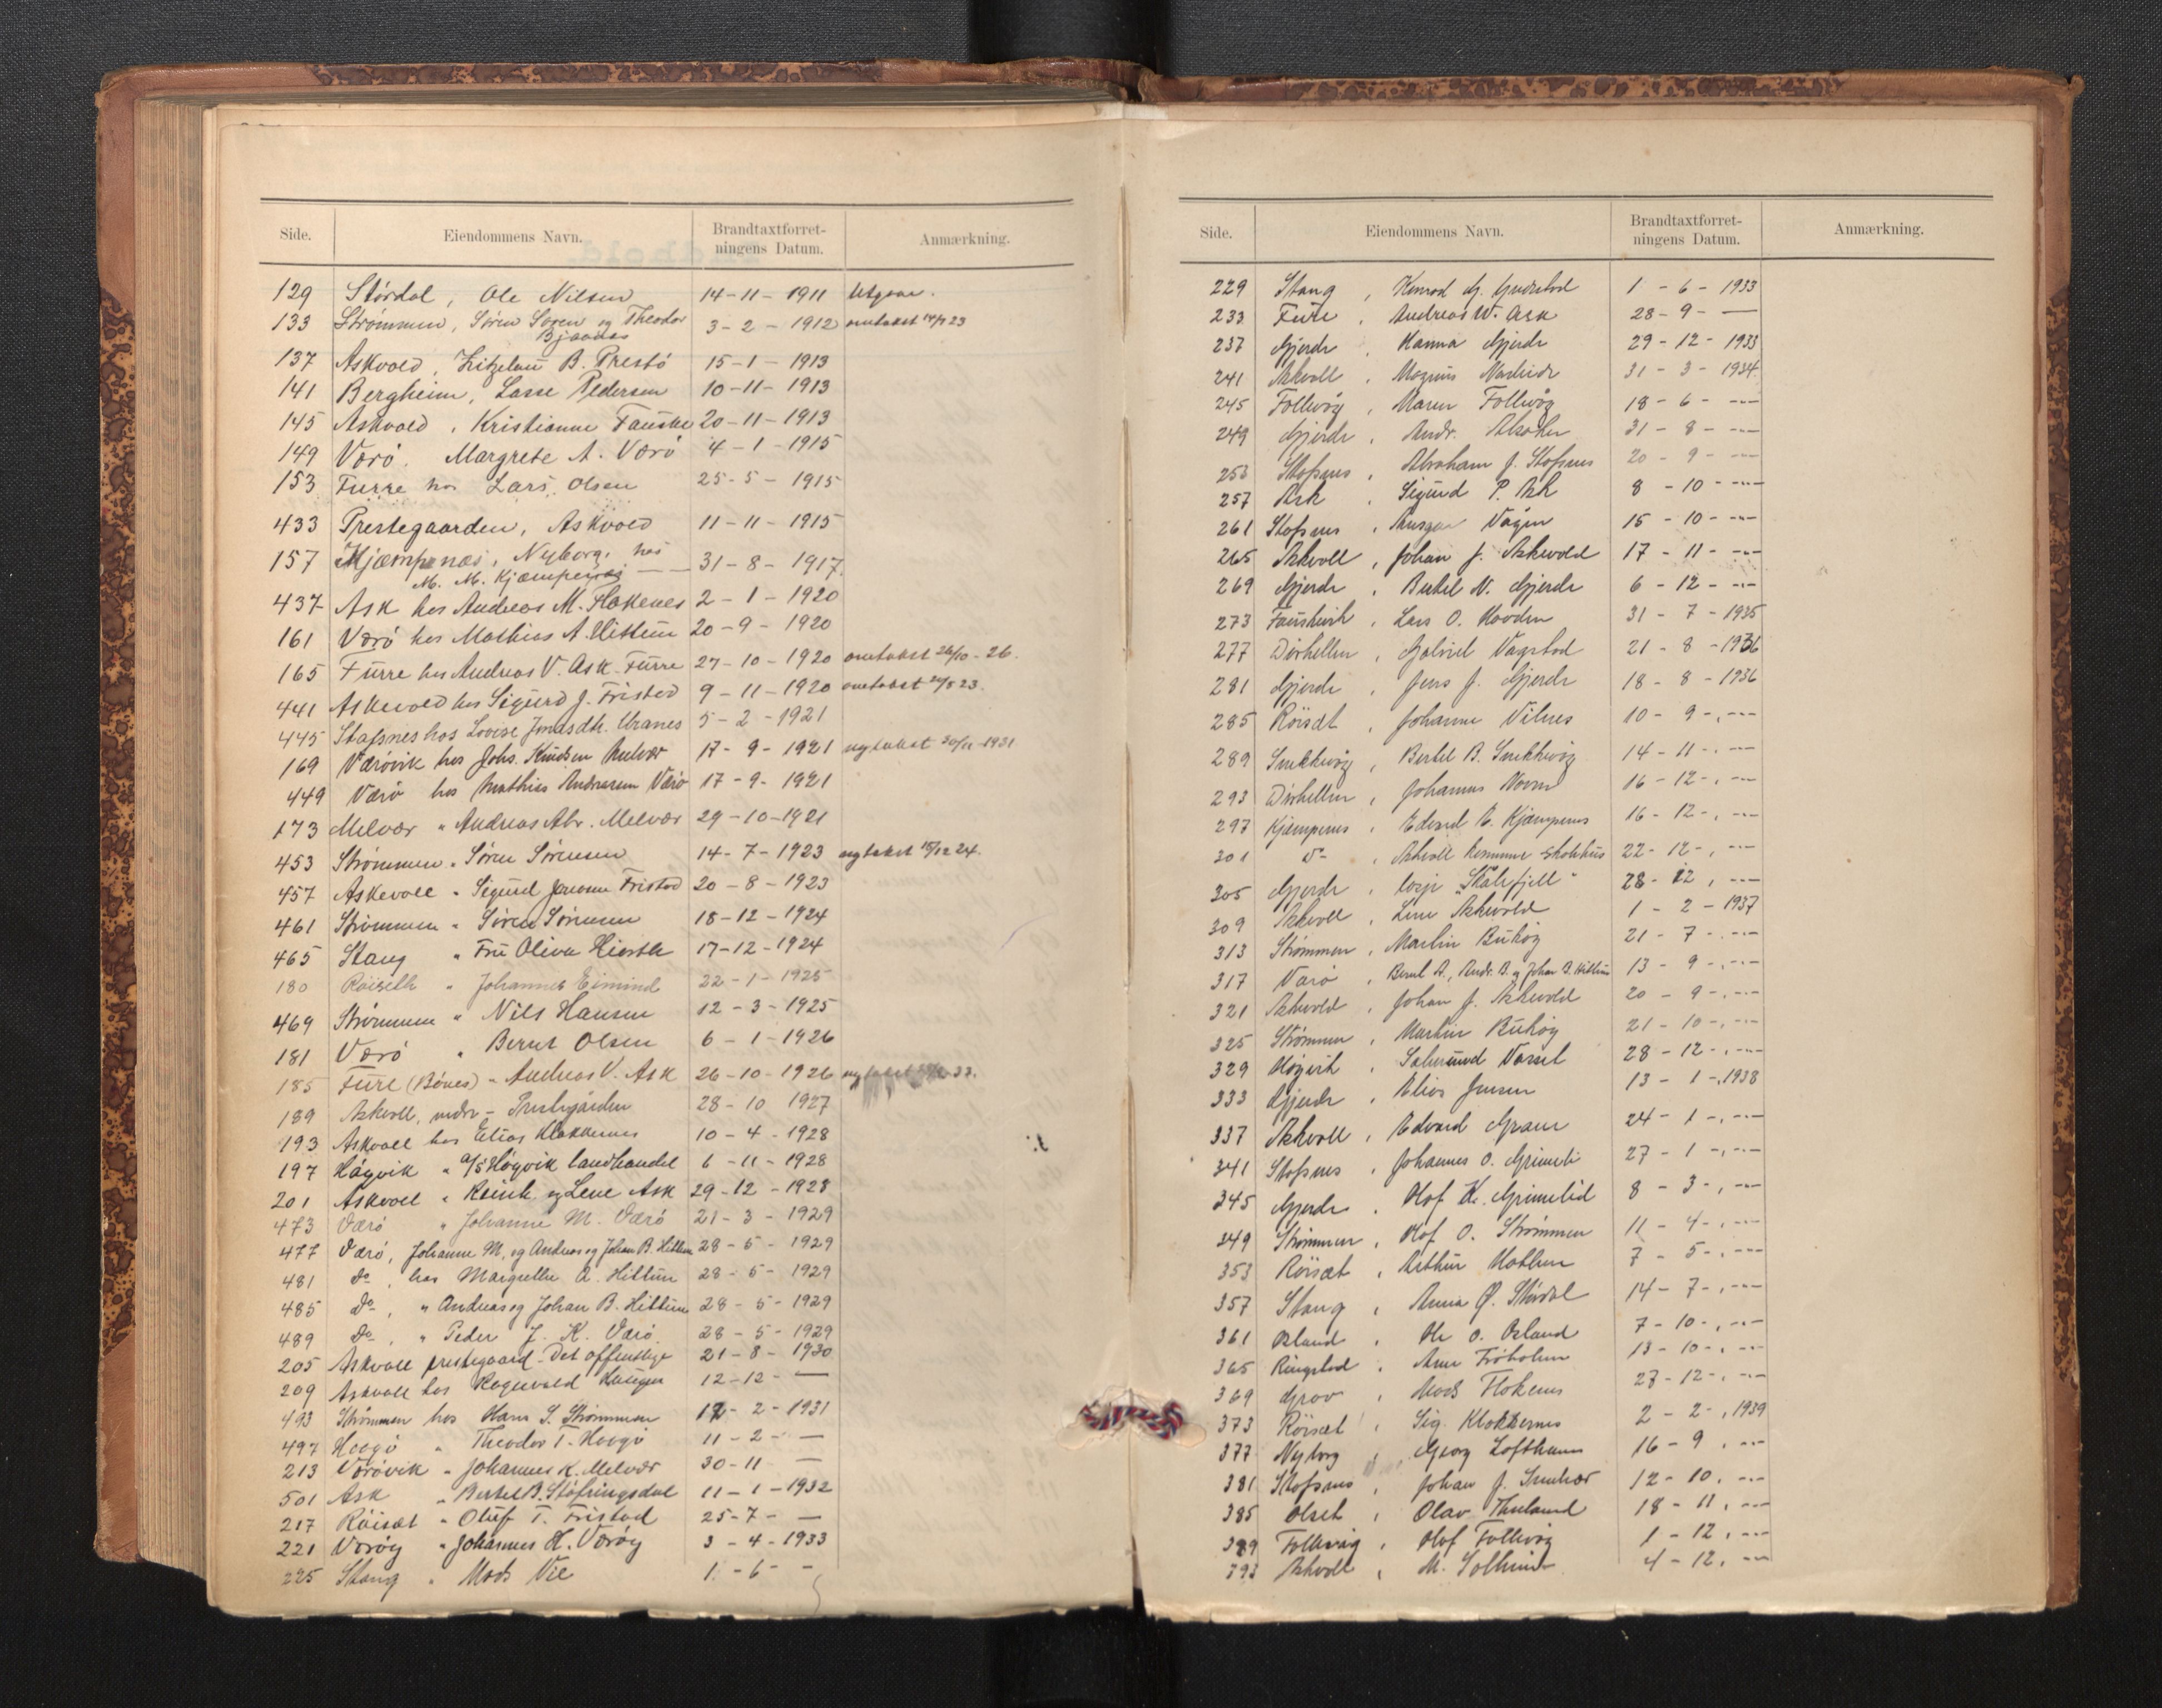 Side. Eiendommens Navn. Brandtaxtforret-ningens Datum. Anmærkning.
129 Stórdal, Ole Nilsen 14-11- 1911 Utgaar.
133 Strømmen, Søren Søren og Theodor 3-2-1912 omtakst 14/7 23
Bjaanes
137 Askvold, B. Prestö 15-1-1913
141 Bergheim, Lasse Pedersen 10-11-1913
145 Askvold, Kristianne Fauske 20-11-1913
149 Værö. Margrete A. Værö 4-1-1915
153 Furre hos Lars Olsen 25-5-1915
433 Prestegaarden, Askvold 11-11-1915
157 Kjæmpenæs, Nyborg, hos 31-8-1917
M. M. Kjæmpenæs
437 Ask hos Andreas M. Flokenes 2-1-1920
161 Værö hos Mathias A. Hittun 20-9-1920
165 Furre hos Andreas V. Ask. Furre 27-10-1920 omtakst 26/10-26.
441 Askevold hos Sigurd J. Fristad 9-11-1920 omtakst 20/8 23.
445 Stafsnes hos Lovise Jonasdtr. Vranes 5-2-1921
169 Værövik hos Johs. Knudsen Melvær 17-9-1921 nytakst 30/11-1931
449 Værö hos Mathias Andreasen Værö 17-9-1921
173 Melvær " Andreas Abr. Melvær 29-10-1921
453 Strömmen " Sören Sörensen 14-7-1923 nytakst 18/12 24.
457 Askevoll " Sigurd Fristad 20-8-1923
461 Strömmen " Sören Sörensen 18-12-1924
465 Stang " Fru Oliva Hierth 17-12-1924
180 Röiseth " Johannes Eimind 22-1-1925
469 Strömmen " Nils Hansen 12-3-1925
181 Værö " Bernt Olsen 6-1-1926
185 Fure (Bönes) " Andreas V. Ask 26-10-1926 nytakst 33.
189 Askvoll, nedre - Prestegården 28-10 1927
193 Askvoll hos Elias Klakkenes 10-4-1928
197 Högvik " A/S Högvik landhandel 6-11-1928
201 Askvoll " og Lene Ask 29-12-1928
473 Værö " Johanne M. Værö 21-3-1929
477 Værö, Johanne M. og Andreas og Johan B. Hittun 28-5-1929
481 do, hos Margrethe A. Hittun 28-5-1929
485 Do, " Andreas og Johan B. Hittun 28-5-1929
489 Do, " Peder J. K. Værö 28-5-1929
205 Askvoll prestegaard - Det offentlige 21-8-1930
209 Askvoll hos Ragnvald 12-12- —
493 Strömmen hos Hans S. Strömmen 12-2-1931
497 Hovgö " Theodor T. Hovgö 11-2- —
213 Værövik " Johannes K. Melvær 30-11 —
501 Ask " Bertel B. Stöfringsdal 11-1-1932
217 Röiset " Oluf T. Fristad 25-7- —
221 Væröy " Johannes H. Væröy 3-4-1933
225 Stang " Mads Vie 1-6- -
Side. Eiendommens Navn. Brandtaxtforret-ningens Datum. Anmærkning.
229 Stang, Konrad 1-6-1933
233 Fure, Andreas W. Ask 28-9- —
237 Gjerde, Hanna Gjerde 29-12-1933
241 Askvoll, Magnus 31-3-1934
245 Follevåg, Maren Follevåg 18-6- -"-
249 Gjerde, Andr. 31-8- -"-
253 Stafsnes, Abraham J. Stafsnes 20-9- -"-
257 Ask, Sigurd P. Ask 8-10- -"-
261 Stafsnes, Ansgar Vågen 15-10- -"-
265 Askvoll, Johan J. Askvold 17-11- -"-
269 Gjerde, Bertel N. Gjerde 6-12- -"-
273 Lars O. Hovden 31-7-1935
277 Dörhellen, Gabriel Vagstad 21-8-1936
281 Gjerde, Jens J. Gjerde 18-8-1936
285 Röisæt, Johanne Vilnes 10-9- -"-
289 Smekkevåg, Bertel B. Smekkevåg 14-11- -"-
293 Dörhellen, Johannes 16-12- -"-
297 Kjæmpenes, Edvard E. Kjæmpenes 16-12- -"-
301 do, Askvoll kommune skolehus 22-12- -"-
305 Gjerde, losje "Skålefjell" 28-12, -"-
309 Askvoll, Lene Askvold 1-2-1937
313 Strömmen, Martin Buhög 21-7- -"-
317 Værö, Bernt A., Andr. B. og Johan B. Hittun 13-9- -"-
321 Askvold, Johan J. Askvold 20-9- -"-
325 Strömmen, Martin Buhög 21-10- -"-
329 Högvik, Salmund Vassel 28-12- -"-
333 Gjerde, Elias Jensen 13-1-1938
337 Askvoll, Edvard 24-1- -"-
341 Stafsnes, Johannes O. Grimeli 27-1- -"-
345 Gjerde, Olaf K. Grimelid 8-3- -"-
349 Strömmen, Olaf O. Strömmen 11-4- -"-
353 Röisæt, Arthur 7-5- -"-
357 Stang, Anna Ø. Stördal 14-7- -"-
361 Osland, Ole O. Osland 7-10- -"-
365 Ringstad, Arne Fröholm 13-10- -"-
369 Grov, Mads Flokenes 27-12- -"-
373 Röisæt, Sig. Klakkenes 2-2-, 1939
377 Nyborg, Georg Lofthuus 16-9, -"-
381 Stafsnes, Johan J. 12-10, -"-
385 Olset, Olav Thuland 18-11, -"-
389 Follevåg, Olaf Follevåg 1-12, -"-
393 Askvoll, M. Solheim 4-12, -"-